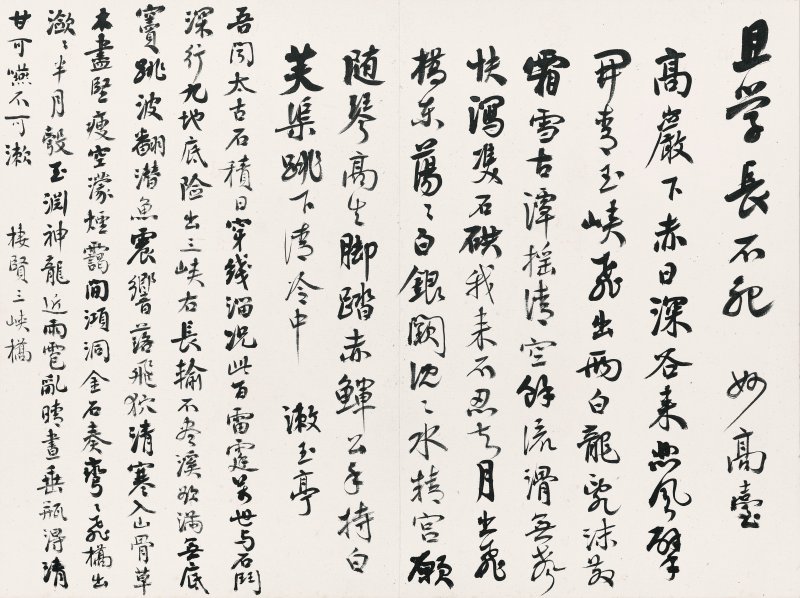 且学長不死　妙高臺
高巖下赤日深谷来悲風擘
開青玉峽飛出兩白龍亂沫散
霜雪古潭摇清空餘流滑無聲
快瀉雙石谼我来不忍去月出飛
橋東蕩〻白銀闕沈〻水精宮願
随琴高生脚踏赤鯶公手持白
芙蕖跳下清冷中　漱玉亭
吾聞太古石積日穿綫溜况此百雷霆萬世与石鬥
深行九地底險出三峽右長輸不盡溪欲滿無底
竇跳波翻潜魚震響落飛狖清寒入山骨草
木盡堅瘦空濛煙靄間澒洞金石奏彎〻飛橋出
瀲〻半月彀玉淵神龍近雨雹亂晴晝垂瓶得清
甘可嚥不可漱　棲賢三峽橋